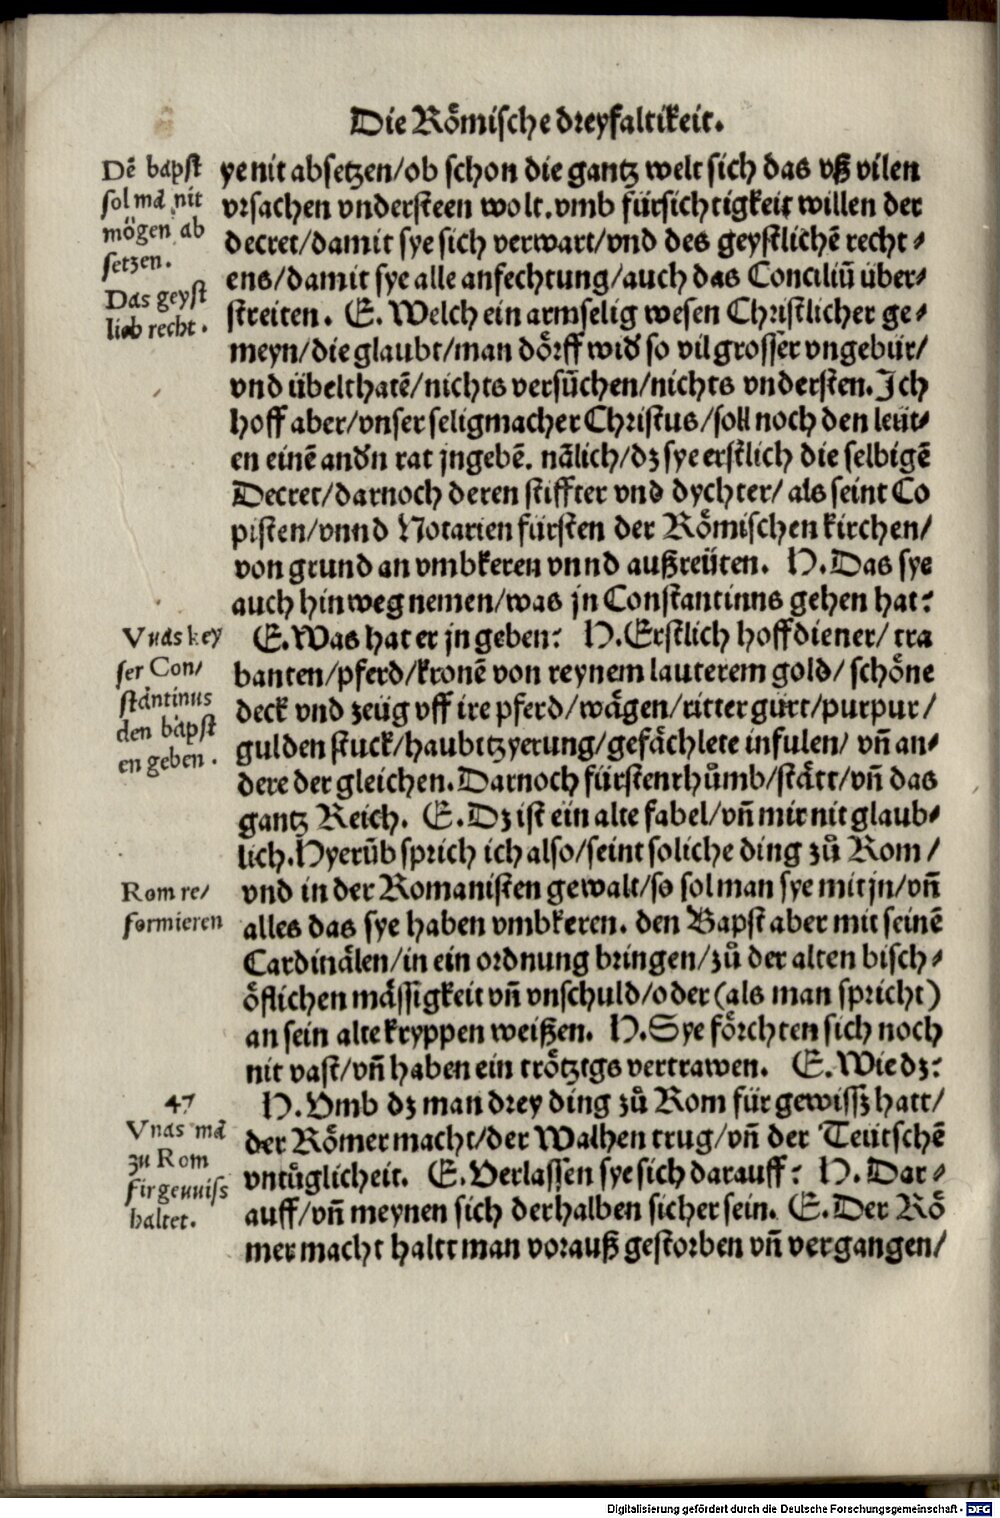 Die Roͤmische dreyfaltikeit.
Dē bapst
sol mā nit
moͤgen ab
setzen.
Das geyst
lich recht.
ye nit absetzen/ob schon die gantz welt sich das vß vilen
vrsachen vndersteen wolt.vmb fürsichtigkeit willen der
decret/damit sye sich verwart/vnd des geystlichē recht⸗
ens/damit sye alle anfechtung/auch das Conciliū über⸗
streiten. E. Welch ein armselig wesen Christlicher ge⸗
meyn/die glaubt/man doͤrff wid̕ so vil grosser vngebür/
vnd übelthatē/nichts versuͤchen/nichts vndersten.Ich
hoff aber/vnser seligmacher Christus/soll noch den leüt⸗
en einē and̕n rat jngebē. nālich/dz sye erstlich die selbigē
Decret/darnoch deren stiffter vnd dychter/als seint Co
pisten/vnnd Notarien fürsten der Roͤmischen kirchen/
von grund an vmbkeren vnnd außreüten. H. Das sye
auch hinweg nemen/was jn Constantinus gehen hat?
Vuas key
ser Con/
stantinus
den bapst
en geben.
E.Was hat er jn geben? H.Erstlich hoffdiener/tra
banten/pferd/kronē von reynem lauterem gold/schoͤne
deck vnd zeüg vff ire pferd/waͤgen/ritter gürt/purpur/
gulden stuck/haubtzyerung/gefaͤchlete infulen/vn̄ an⸗
dere der gleichen.Darnoch fürstenthuͦmb/staͤtt/vn̄ das
gantz Reich. E.Dz ist ein alte fabel/vn̄ mir nit glaub⸗
lich.Hyerüb sprich ich also/seint soliche ding zuͦ Rom/
Rom re/
formieren
vnd in der Romanisten gewalt/so sol man sye mit jn/vn̄
alles das sye haben vmbkeren. den Bapst aber mit seinē
Cardinaͤlen/in ein ordnung bringen/zuͦ der alten bisch⸗
oͤflichen maͤssigkeit vn̄ vnschuld/oder (als man spricht)
an sein alte kryppen weißen. H.Sye foͤrchten sich noch
nit vast/vn̄ haben ein troͤtzigs vertrawen. E.Wie dz?
47
Vuas mā
zu Rom
fir gevuiss
haltet.
H.Vmb dz man drey ding zuͦ Rom für gewissz hatt/
der Roͤmer macht/der Walhen trug/vn̄ der Teütschē
vntuͤglicheit. E.Verlassen sye sich darauff? H.Dar⸗
auff/vn̄ meynen sich derhalben sicher sein. E.Der Roͤ
mer macht haltt man vorauß gestorben vn̄ vergangen/
Digitalisierung gefördert durch die Deutsche Forschungsgemeinschaft - DFG